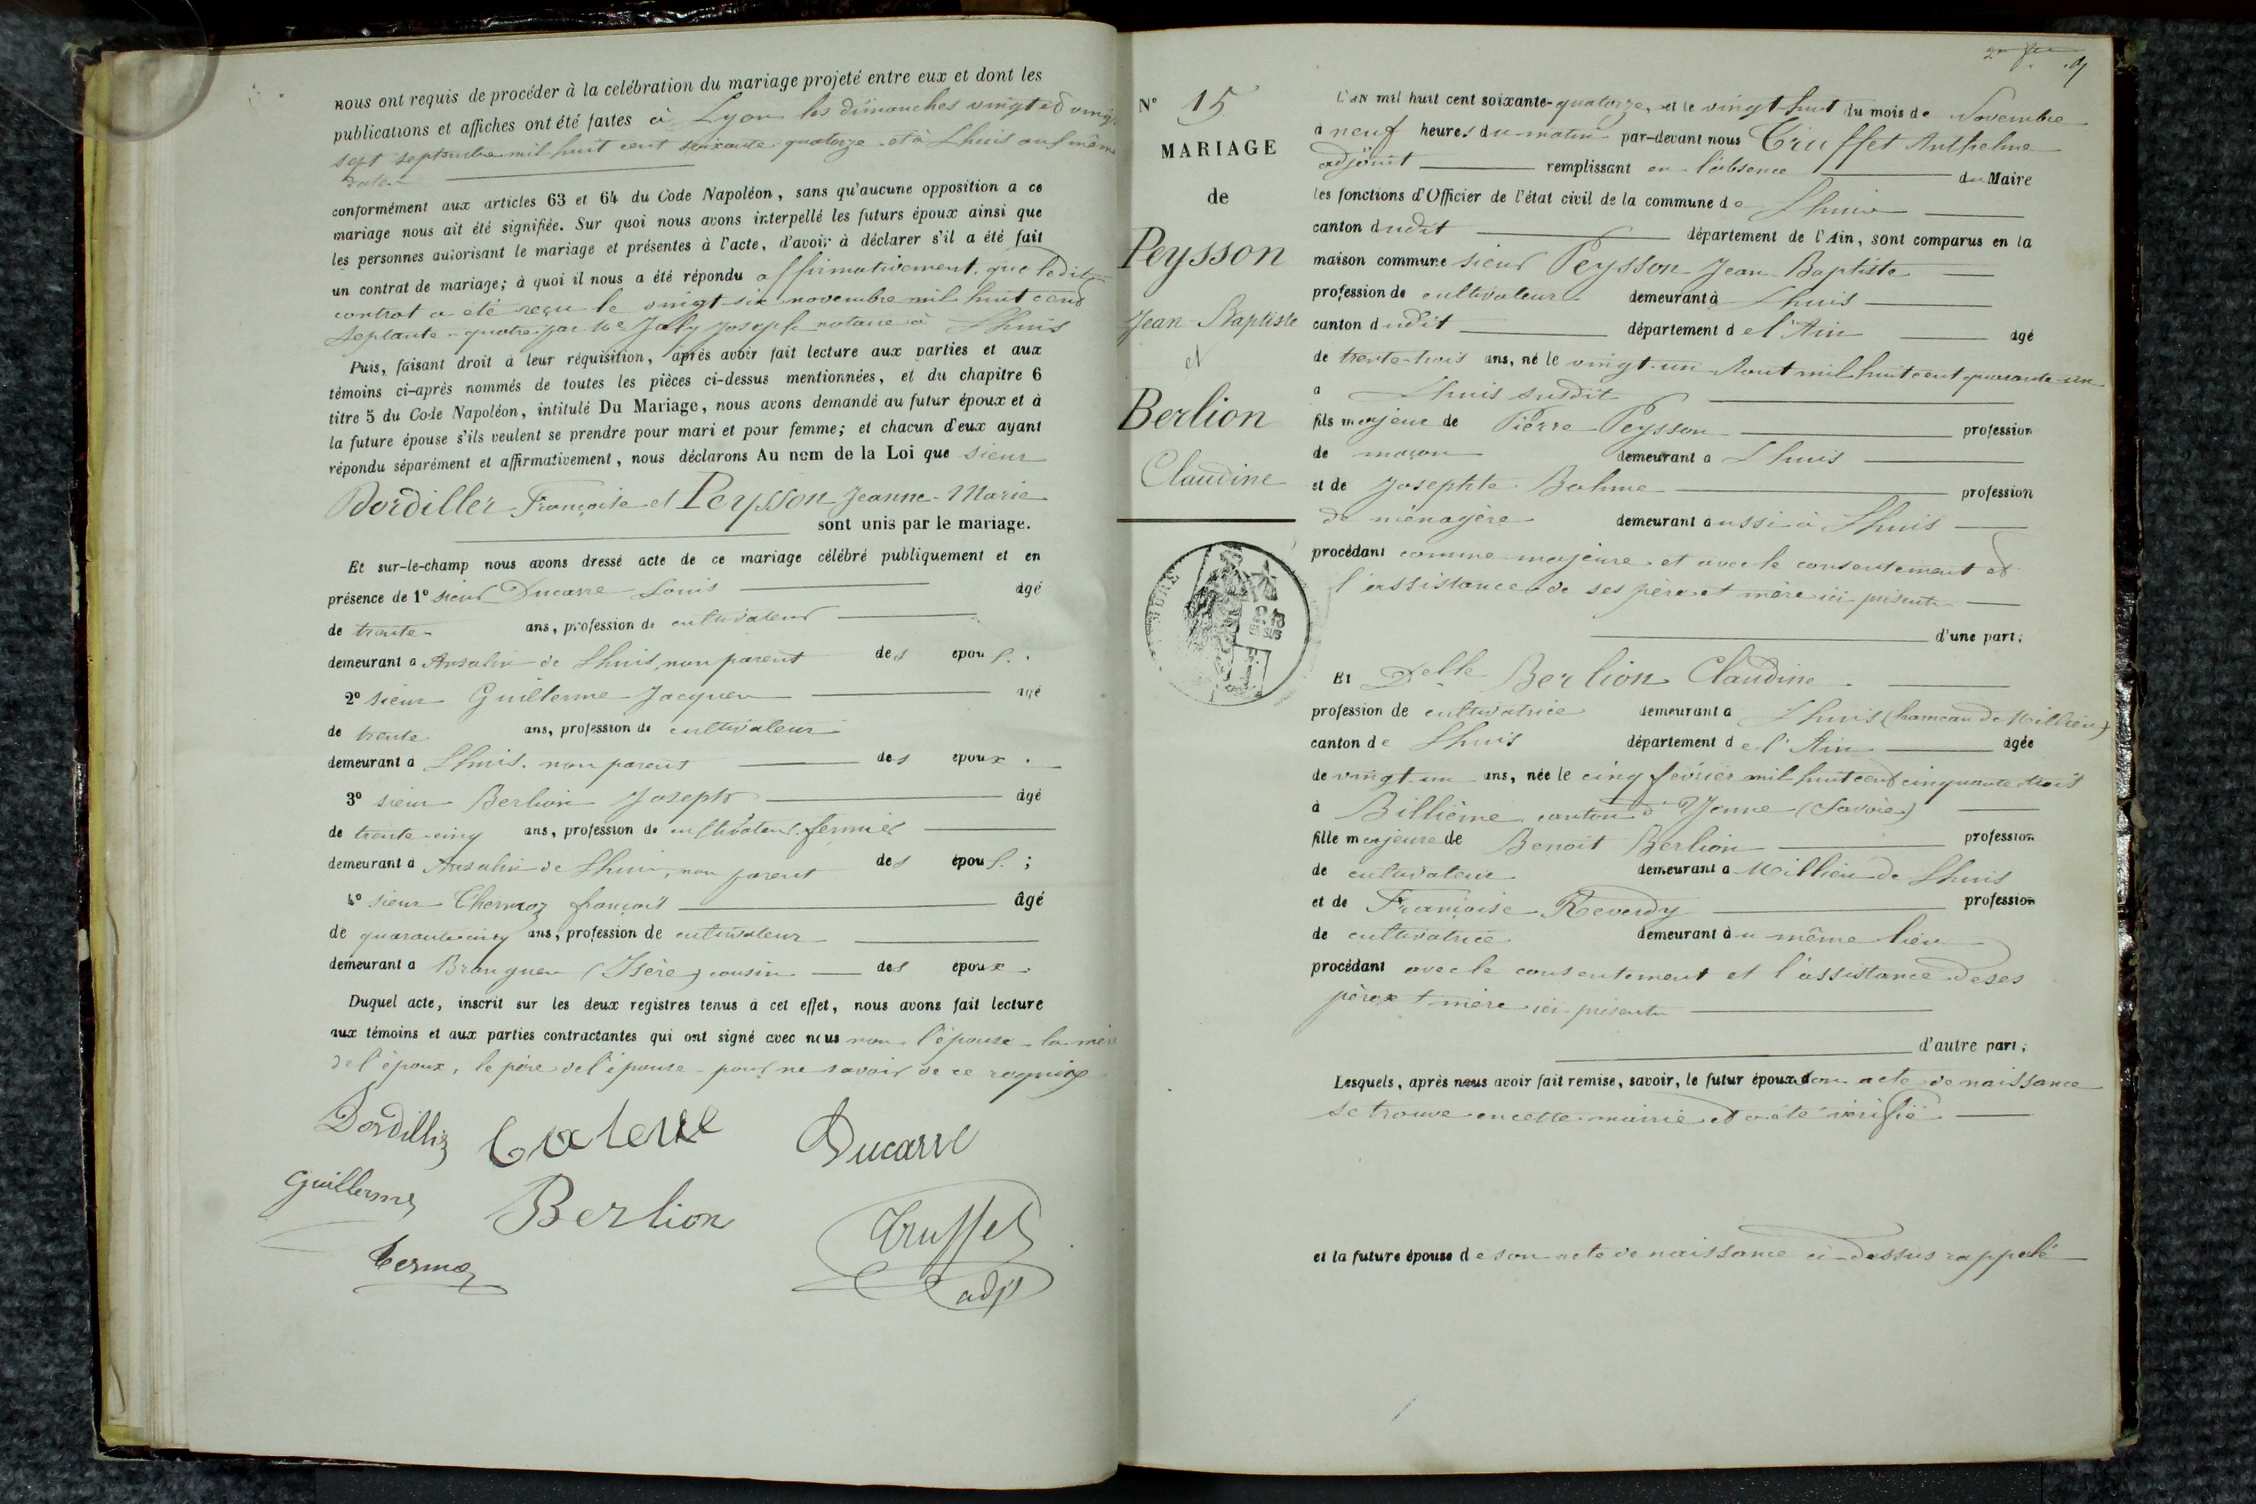 nous ont requis de procéder à la celébration du mariage projeté entre eux et dont les
publications et affiches ont été faites à Lyon les dimanches vingt et vingt
sept septembre mil huit cent soixante quatorze et à Lhuis aux mêmes
dates
conformément aux articles 63 et 64 du Code Napoléon, sans qu'aucune opposition a ce
mariage nous ait été signifiée. Sur quoi nous avons interpellé les futurs époux ainsi que
les personnes autorisant le mariage et présentes à l'acte, d'avoir à déclarer s'il a été fait
un contrat de mariage; à quoi il nous a été répondu affirmativement, que ledit
contrat a été reçu le vingt six novembre mil huit cent
septante-quatre par Me Joly Joseph notaire à Lhuis
Puis, faisant droit à leur réquisition, après avoir fait lecture aux parties et aux
témoins ci-après nommés de toutes les pièces ci-dessus mentionnées, et du chapitre 6
titre 5 du Code Napoléon, intitulé Du Mariage, nous avons demandé au futur époux et à
la future épouse s'ils veulent se prendre pour mari et pour femme; et chacun d'eux ayant
répondu séparément et affirmativement, nous déclarons Au nom de la Loi que sieur
Dordiller Françoise et Peysson Jeanne-Marie
sont unis par le mariage.
Et sur-le-champ nous avons dressé acte de ce mariage célébré publiquement et en
présence de 1° sieur Ducarre Louis âgé
de trente ans, profession de cultivateur
demeurant a Ansolin de Lhuis, non parent des epoux.
2° sieur Guillerme Jacques agé
de trente ans, profession de cultivateur
demeurant à Lhuis, non parent des epoux.
3° sieur Berlion Joseph âgé
de trente-cinq ans, profession de cultivateur fermier
demeurant à Ansolin de Lhuis, non parent des époux;
4° sieur Chermoz françois âgé
de quarante-cinq ans, profession de cultivateur
demeurant a Brangues (Isère) cousin des epoux.
Duquel acte, inscrit sur les deux registres tenus à cet effet, nous avons fait lecture
aux témoins et aux parties contractantes qui ont signé avec nous non l'épouse la mère
de l'époux, le père de l'épouse pour ne savoir de ce requis
Dordilliz Ducarre
Guillerme Berlion Truffet
Cermoz adjt
N° 15
MARIAGE
de
Peysson
Jean-Baptiste
et
Berlion
Claudine
L'an mil huit cent soixante-quatorze, et le vingt-huit du mois de Novembre
a neuf heures du matin par-devant nous Truffet Anthelme
adjoint remplissant en l'absence du Maire
les fonctions d'Officier de l'état civil de la commune de Lhuis
canton dudit département de l'Ain, sont comparus en la
maison commune sieur Peysson Jean-Baptiste
profession de cultivateur demeurant à Lhuis
canton dudit département de l'Ain agé
de trente-trois ans, né le vingt-un Aout mil huit cent quarante-un
a Lhuis susdit
fils majeur de Pierre Peysson profession
de maçon demeurant a Lhuis
et de Josephte profession
de ménagère demeurant aussi à Lhuis
procédant comme majeure et avec le consentement et
l'assistance de ses père et mère ici présents
d'une part;
Et Delle Berlion Claudine
profession de cultivatrice demeurant a Lhuis (hameau de Millieu)
canton de Lhuis département de l'Ain agée
de vingt-un ans, née le cinq février mil huit cent cinquante-trois
à Billième canton d'Yenne (Savoie)
fille majeure de Benoit Berlion profession
de cultivateur demeurant a Millieu de Lhuis
et de Françoise Reverdy profession
de cultivatrice demeurant au même lieu
procédant avec le consentement et l'assistance de ses
père et mère ici présents
d'autre part;
Lesquels, après nous avoir fait remise, savoir, le futur époux son acte de naissance
se trouve en cette mairie et a été vérifié
et la future épouse de son acte de naissance ci-dessus rappelé